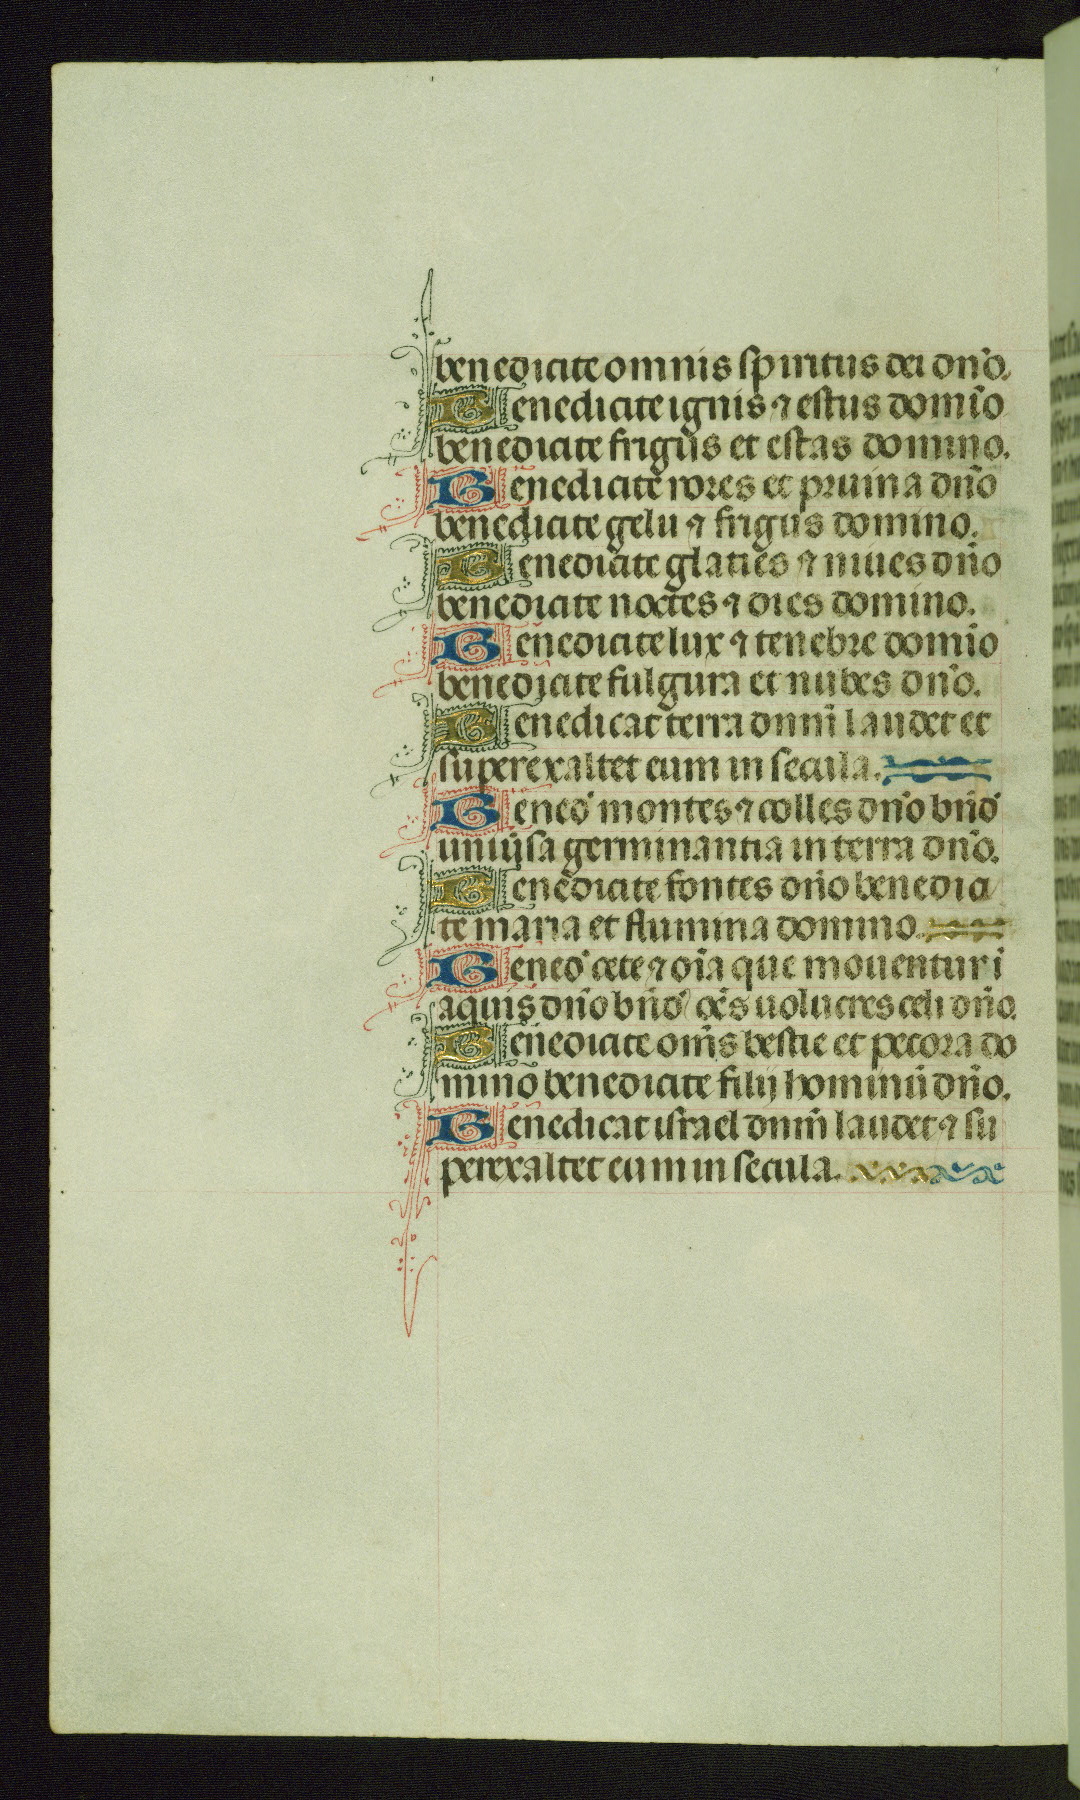 benedicite omnis spiritus dei dn̄o.
Benedicite ignis ⁊ estus domīo
benedicite frigus et estas domino.
Benedicite rores et pruina dn̄o
benedicite gelu ⁊ frigus domino.
Benedicite glaties ⁊ niues dn̄o
benedicite noctes ⁊ dies domino.
Benedicite lux ⁊ tenebre domīo
benedicite fulgura et nubes dn̄o.
Benedicat terra dnm̄ laudet et
superexaltet eum in secula.
Bened̄ montes ⁊ colles dn̄o bn̄d̄
uniūsa germinantia in terra dn̄o.
Benedicite fontes dn̄o benedici
te maria et flumina domino.
Bened̄ cete ⁊ oīa que mouentur ī
aquis dn̄o bn̄d̄ oēs uolucres celi dn̄o.
Benedicite om̄s bestie et pecora do
mino benedicite filij hominū dn̄o.
Benedicat israel dnm̄ laudet ⁊ su
perexaltet eum in secula.